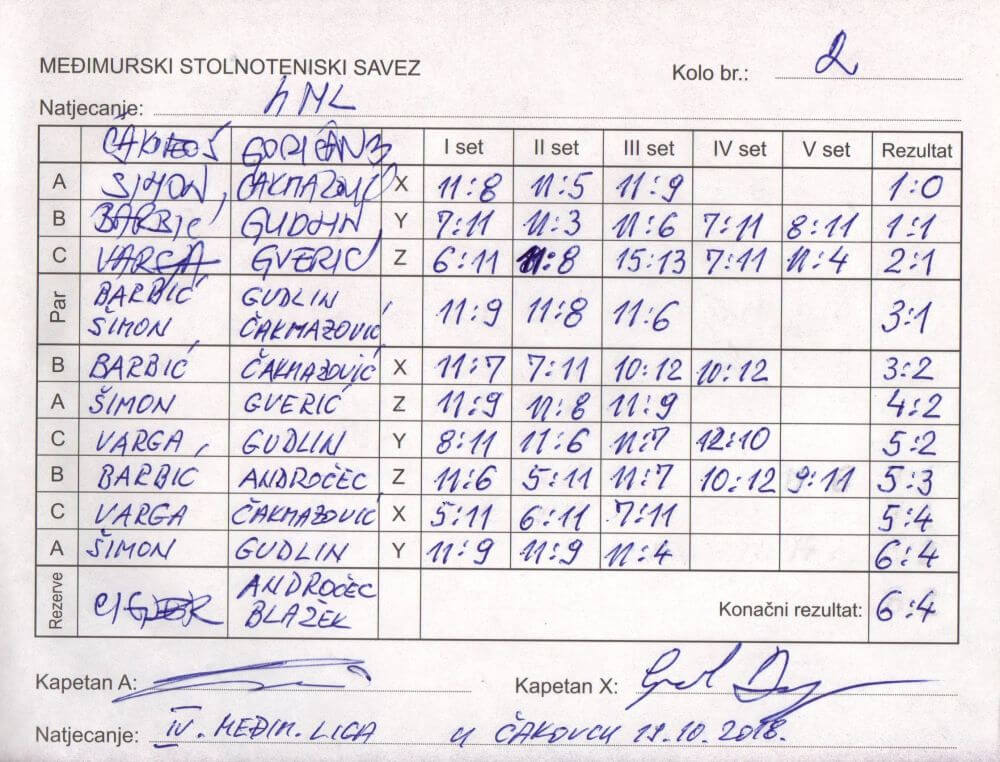 MEĐIMURSKI STOLNOTENISKI SAVEZ
Kolo br.: 2
Natjecanje: 4 ML
GORIČAN 3 I set II set III set IV set V set Rezultat
A ŠIMON ČAKMAZOVIĆ X 11:8 11:5 11:9 1:0
B BARBIĆ GUDLIN Y 7:11 11:3 11:6 7:11 8:11 1:1
C VARGA GVERIĆ Z 6:11 11:8 15:13 7:11 11:4 2:1
Par BARBIĆ GUDLIN
ŠIMON ČAKMAZOVIĆ 11:9 11:8 11:6 3:1
B BARBIĆ ČAKMAZOVIĆ X 11:7 7:11 10:12 10:12 3:2
A ŠIMON GVERIĆ Z 11:9 11:8 11:9 4:2
C VARGA GUDLIN Y 8:11 11:6 11:7 12:10 5:2
B BARBIĆ ANDROČEC Z 11:6 5:11 11:7 10:12 9:11 5:3
C VARGA ČAKMAZOVIĆ X 5:11 6:11 7:11 5:4
A ŠIMON GUDLIN Y 11:9 11:9 11:4 6:4
Rezerve ANDROČEC
BLAŽEK Konačni rezultat: 6:4
Kapetan A: Kapetan X:
Natjecanje: IV. MEĐIM. LIGA u ČAKOVCU 19.10.2018.